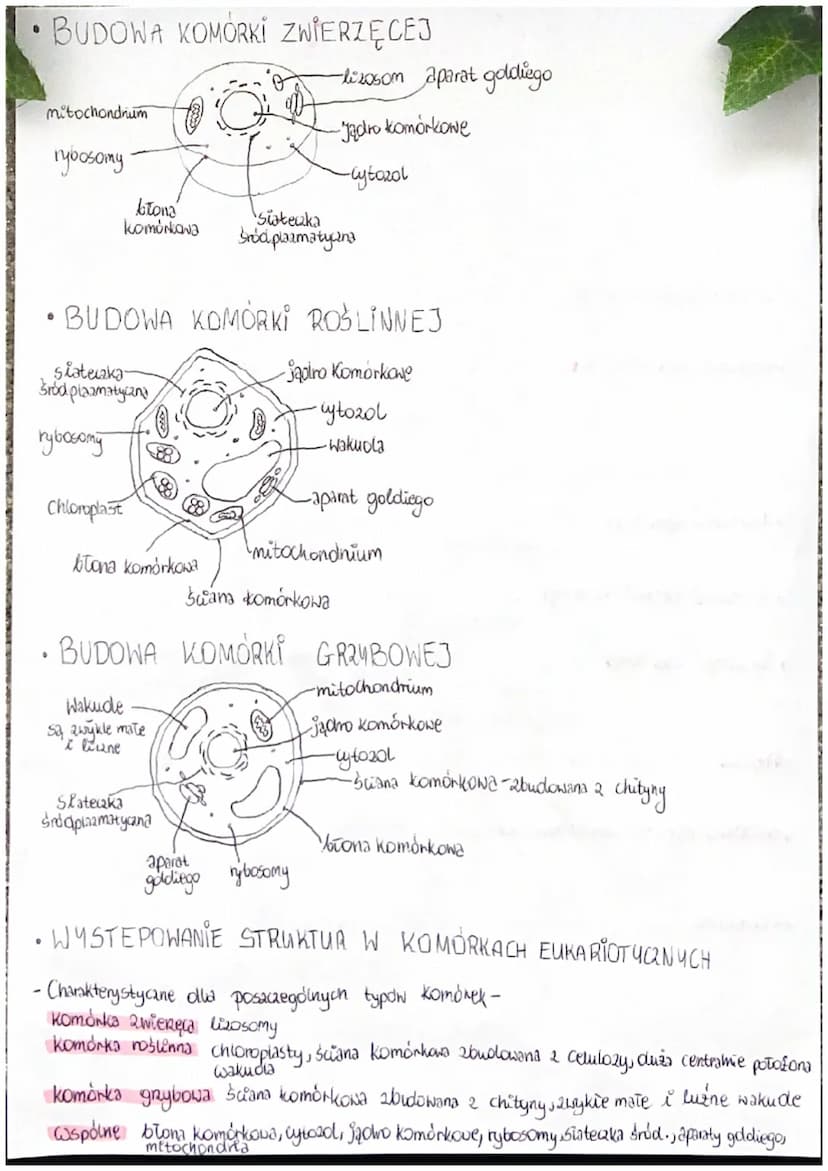 • BUDOWA KOMÓRKI ZWIERZĘCEJ
lizosom
aparat goldiego
mitochondrium
jądro komórkowe
rybosomy
cytozol
błona
komórkowa
siateczka
śródplazmatyczna
• BUDOWA KOMÓRKI ROŚLINNEJ
siateczka
śródplazmatyczna
jądro komórkowe
cytozol
rybosomy
wakuola
chloroplast
aparat goldiego
mitochondrium
błona komórkowa
ściana komórkowa
• BUDOWA KOMÓRKI GRZYBOWEJ
mitochondrium
Wakuole
są zwykle małe
i liczne
jądro komórkowe
cytozol
ściana komórkowa - zbudowana z chityny
siateczka
śródplazmatyczna
błona komórkowa
aparat
goldiego
rybosomy
• WYSTEPOWANIE STRUKTUR W KOMÓRKACH EUKARIOTYCZNYCH
- Charakterystyczne dla poszczególnych typów komórek -
komórka zwierzęca lizosomy
komórka roślinna chloroplasty, ściana komórkowa zbudowana z celulozy, duża centralnie położona
wakuola
komórka grzybowa ściana komórkowa zbudowana z chityny, zwykle małe i luźne wakuole
wspólne błona komórkowa, cytozol, jądro komórkowe, rybosomy, siateczka śród., aparaty goldiego,
mitochondria